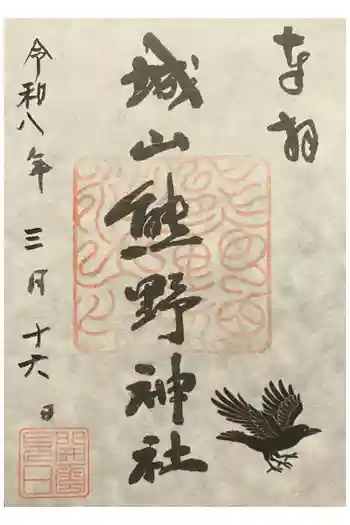 奉拝
城山熊野神社
令和八年 三月 十六日